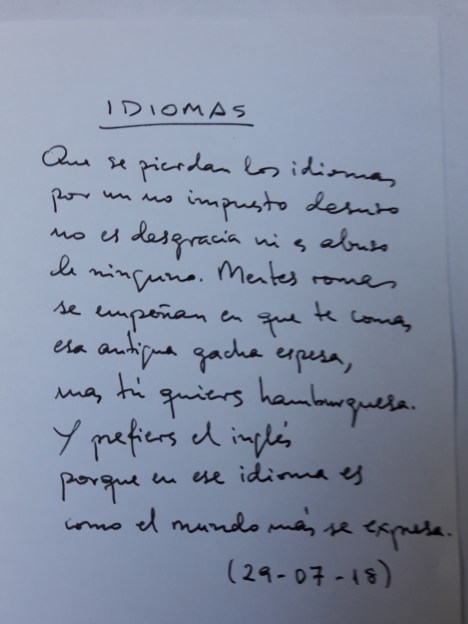 IDIOMAS
Que se pierdan los idiomas
por un no impuesto desuso
no es desgracia ni es abuso
de ninguno. Mentes romas
se empeñan en que te comas
esa antigua gacha espesa,
mas tú quieres hamburguesa.
Y prefieres el inglés
porque en ese idioma es
como el mundo más se expresa.
(29-07-18)